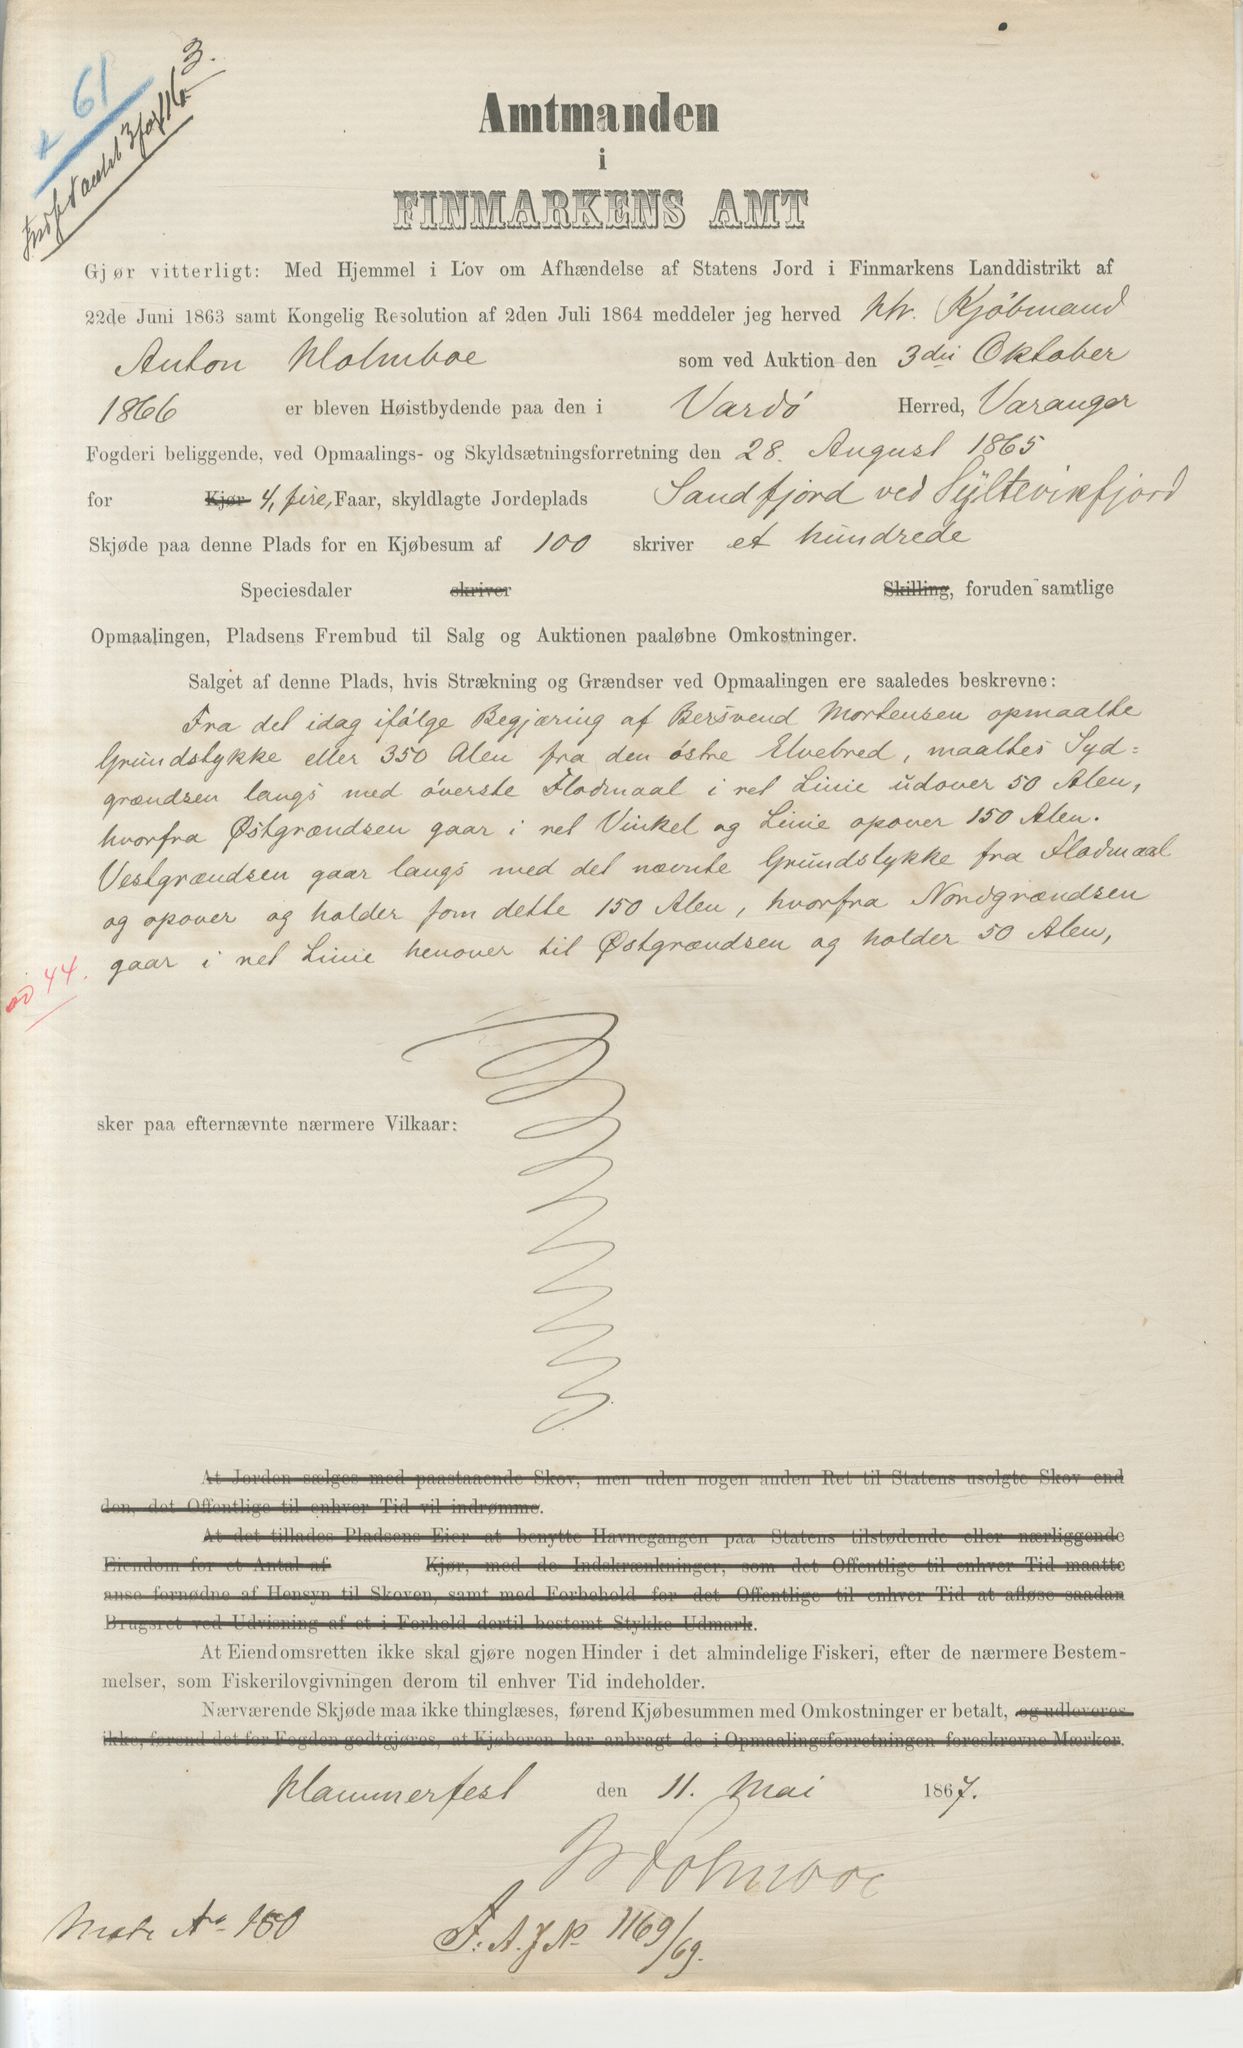 61
3.
Amtmanden
i
FINMARKENS AMT
Gjør vitterligt: Med Hjemmel i Lov om Afhændelse af Statens Jord i Finmarkens Landdistrikt af
22de Juni 1863 samt Kongelig Resolution af 2den Juli 1864 meddeler jeg herved Hr. Kjøbmand
Anton Holmboe som ved Auktion den 3die Oktober
1866 er bleven Høistbydende paa den i Vardø Herred, Varanger
Fogderi beliggende, ved Opmaalings- og Skyldsætningsforretning den 28. August 1865
for Kjør 4, fire, Faar, skyldlagte Jordeplads Sandfjord ved Syltevikfjord
Skjøde paa denne Plads for en Kjøbesum af 100 skriver et hundrede
Speciesdaler skriver Skilling, foruden samtlige
Opmaalingen, Pladsens Frembud til Salg og Auktionen paaløbne Omkostninger.
Salget af denne Plads, hvis Strækning og Grændser ved Opmaalingen ere saaledes beskrevne:
Fra det idag ifølge Begjæring af Bersvend Mortensen opmaalte
Grundstykke eller 350 Alen fra den østre Elvebred, maaltes Syd=
grændsen langs med øverste Flodmaal i ret Linie udover 50 Alen,
hvorfra Østgrændsen gaar i ret Vinkel og Linie opover 150 Alen.
Vestgrændsen gaar langs med det nævnte Grundstykke fra Flodmaal
og opover og holder som dette 150 Alen, hvorfra Nordgrændsen
gaar i ret Linie henover til Østgrændsen og holder 50 Alen,
44.
sker paa efternævnte nærmere Vilkaar:
At Jorden sælges med paastaaende Skov, men uden nogen anden Ret til Statens usolgte Skov end
den, det Offentlige til enhver Tid vil indrømme.
At det tillades Pladsens Eier at benytte Havnegangen paa Statens tilstødende eller nærliggende
Eiendom for et Antal af Kjør, med de Indskrænkninger, som det Offentlige til enhver Tid maatte
anse fornødne af Hensyn til Skoven, samt med Forbehold for det Offentlige til enhver Tid at afløse saadan
Brugsret ved Udvisning af et i Forhold dertil bestemt Stykke Udmark.
At Eiendomsretten ikke skal gjøre nogen Hinder i det almindelige Fiskeri, efter de nærmere Bestem-
melser, som Fiskerilovgivningen derom til enhver Tid indeholder.
Nærværende Skjøde maa ikke thinglæses, førend Kjøbesummen med Omkostninger er betalt, og udleveres
ikke, førend det for Fogden godtgjøres, at Kjøberen har anbragt de i Opmaalingsforretningen foreskrevne Mærker.
Hammerfest den 11. Mai 1867.
Holmboe
Matr No 150
F. A. J No 1169/69.